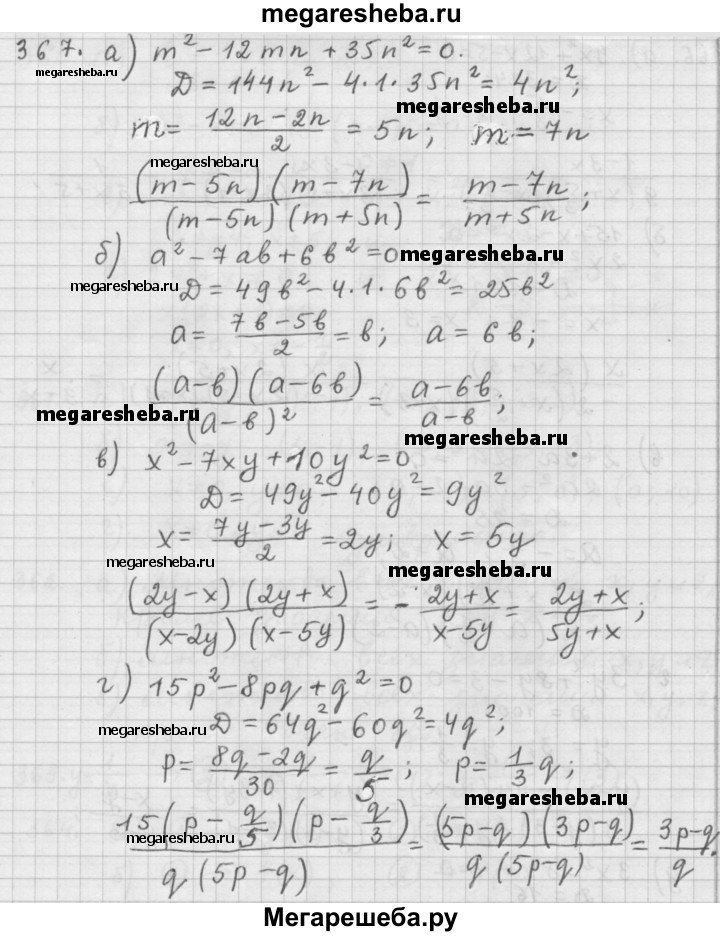 megaresheba.ru
367. а) m² - 12mn + 35n² = 0.
megaresheba.ru Д = 144n² - 4·1·35n² = 4n²;
megaresheba.ru
m = (12n - 2n)/2 = 5n; m = 7n
megaresheba.ru
((m - 5n)(m - 7n))/((m - 5n)(m + 5n)) = (m - 7n)/(m + 5n);
б) a² - 7ab + 6b² = 0 megaresheba.ru
megaresheba.ru Д = 49b² - 4·1·6b² = 25b²
a = (7b - 5b)/2 = b; a = 6b;
((a - b)(a - 6b))/((a - b)²) = (a - 6b)/(a - b);
megaresheba.ru
megaresheba.ru
в) x² - 7xy + 10y² = 0
Д = 49y² - 40y² = 9y²
x = (7y - 3y)/2 = 2y; x = 5y
megaresheba.ru megaresheba.ru
((2y - x)(2y + x))/((x - 2y)(x - 5y)) = - (2y + x)/(x - 5y) = (2y + x)/(5y + x);
г) 15p² - 8pq + q² = 0
megaresheba.ru Д = 64q² - 60q² = 4q²;
p = (8q - 2q)/30 = q/5; p = 1/3 q;
megaresheba.ru
(15(p - q/5)(p - q/3))/(q(5p - q)) = ((5p - q)(3p - q))/(q(5p - q)) = (3p - q)/q.
Мегарешеба.ру